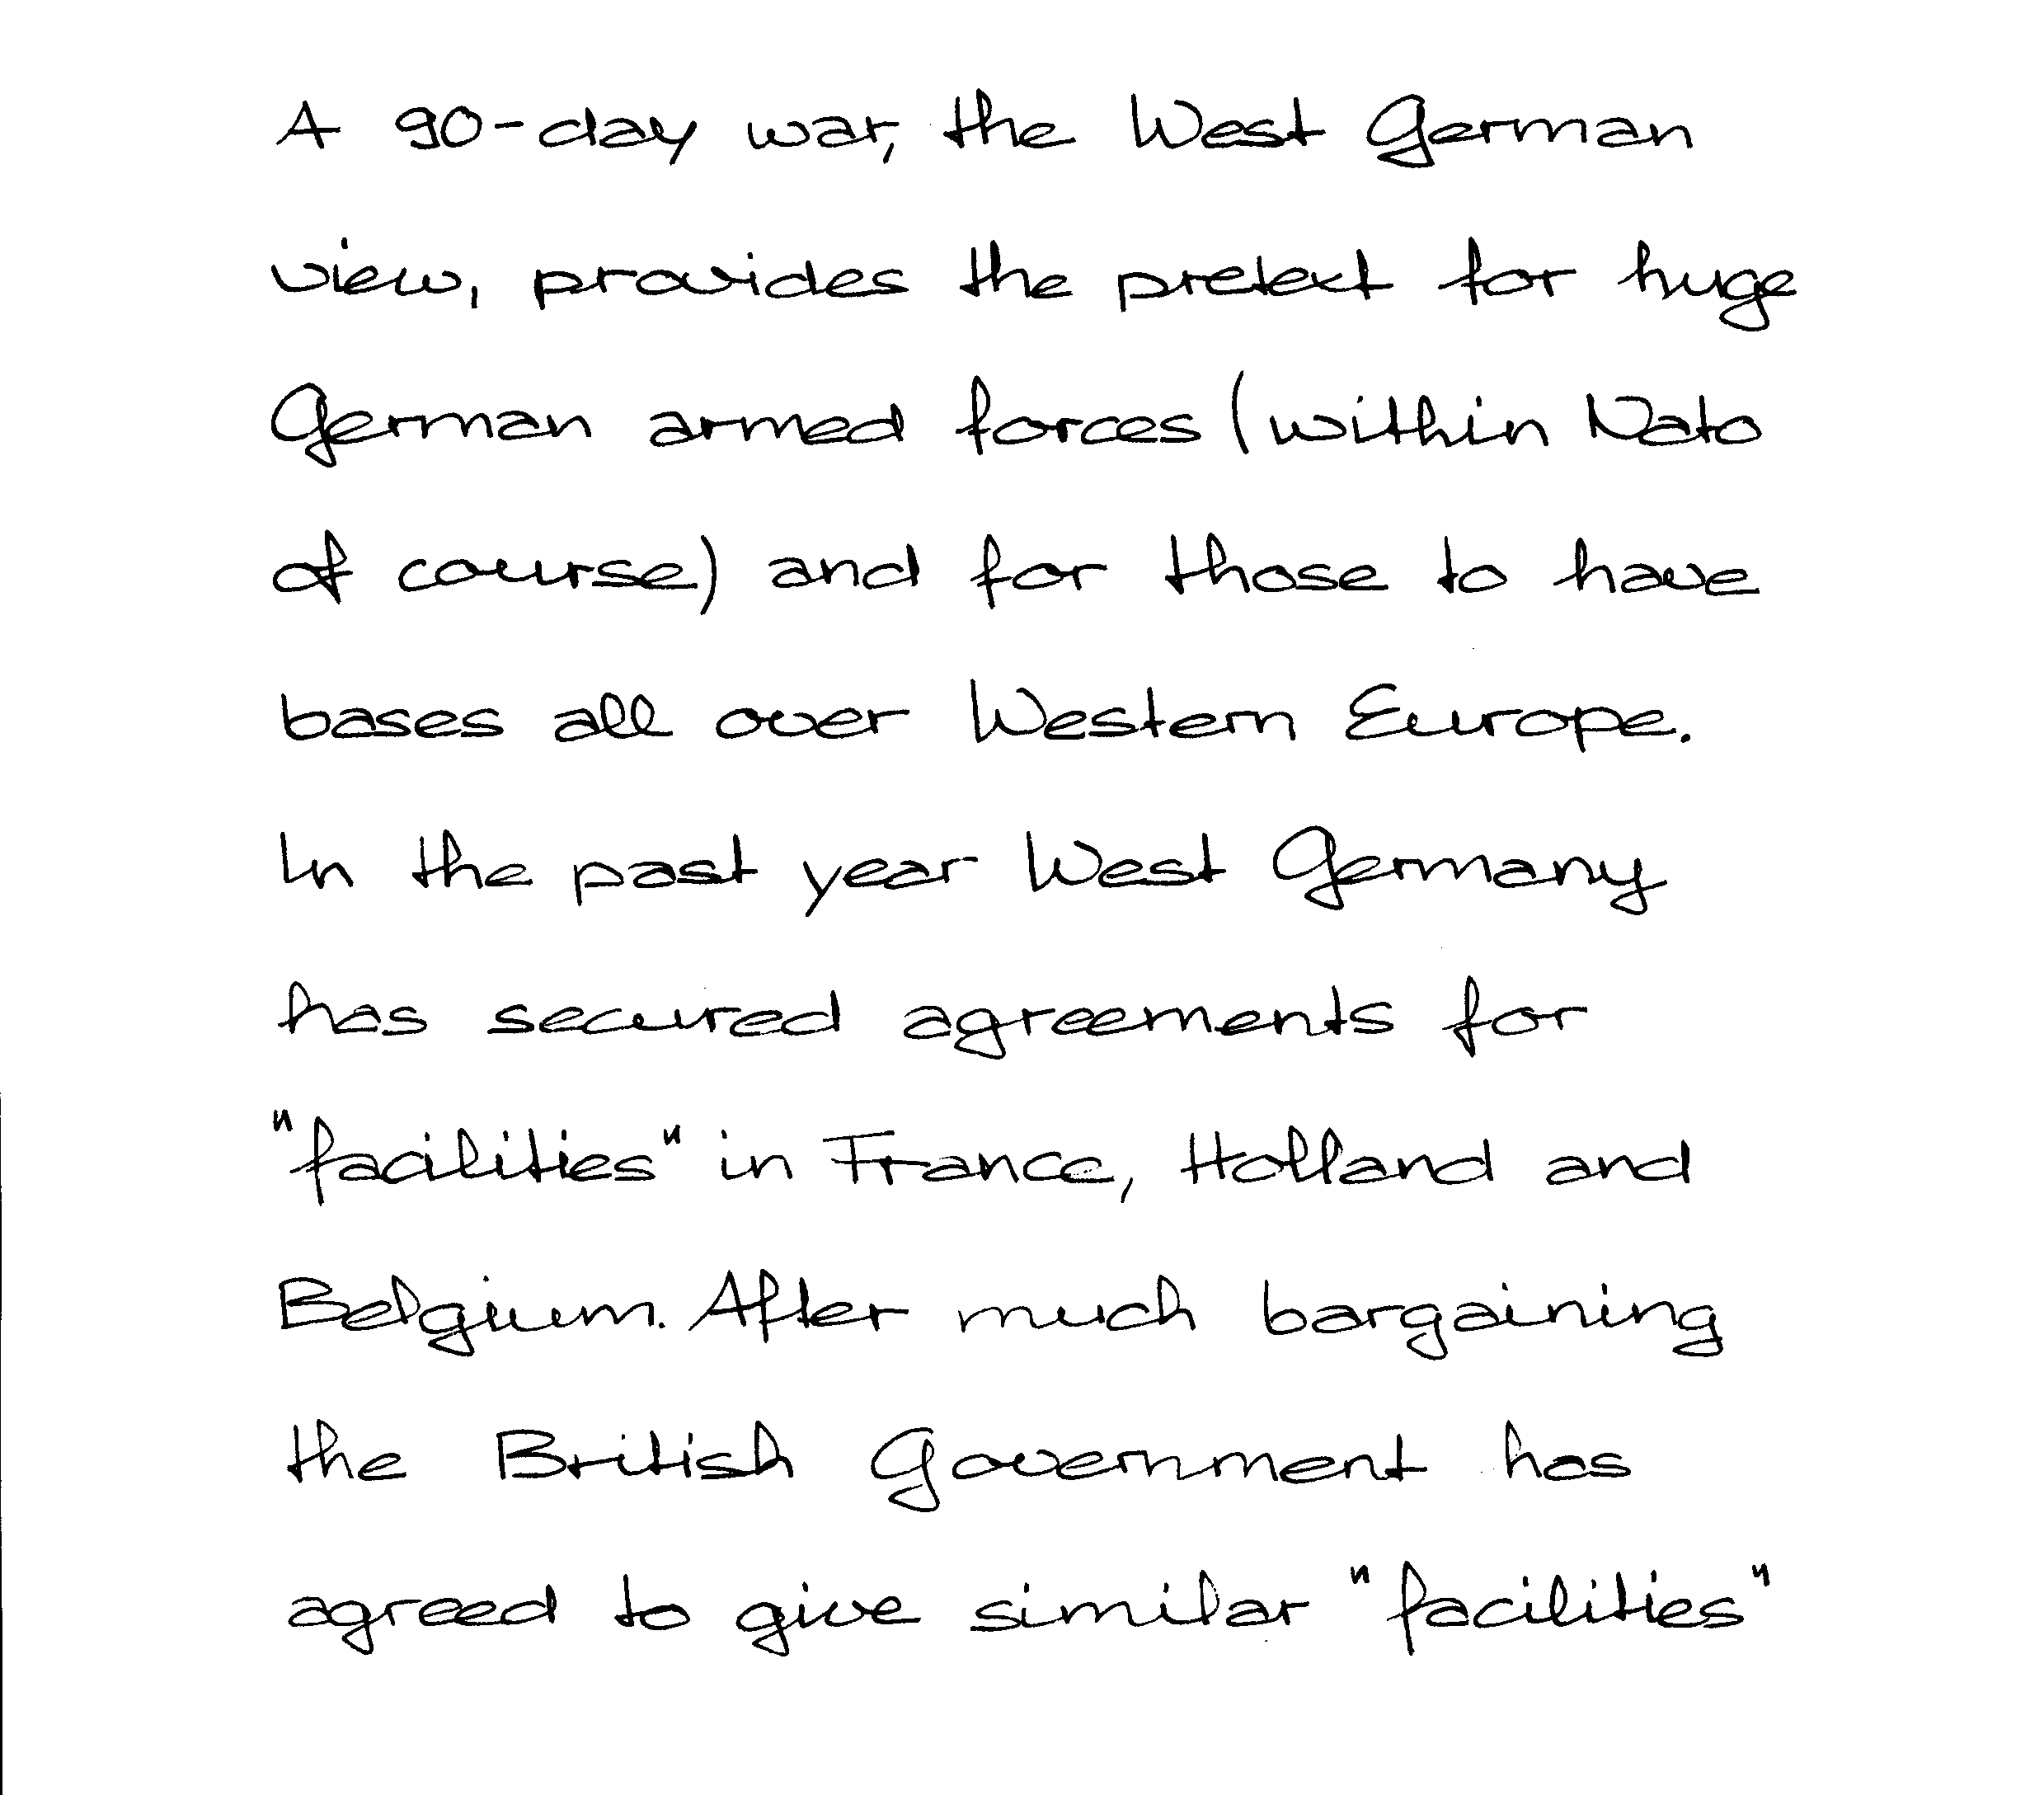 A 90-day war, the West German
view, provides the pretext for huge
German armed forces (within Nato
of course) and for those to have
bases all over Western Europe.
In the past year West Germany
has secured agreements for
"facilities" in France, Holland and
Belgium. After much bargaining
the British Government has
agreed to give similar "facilities"